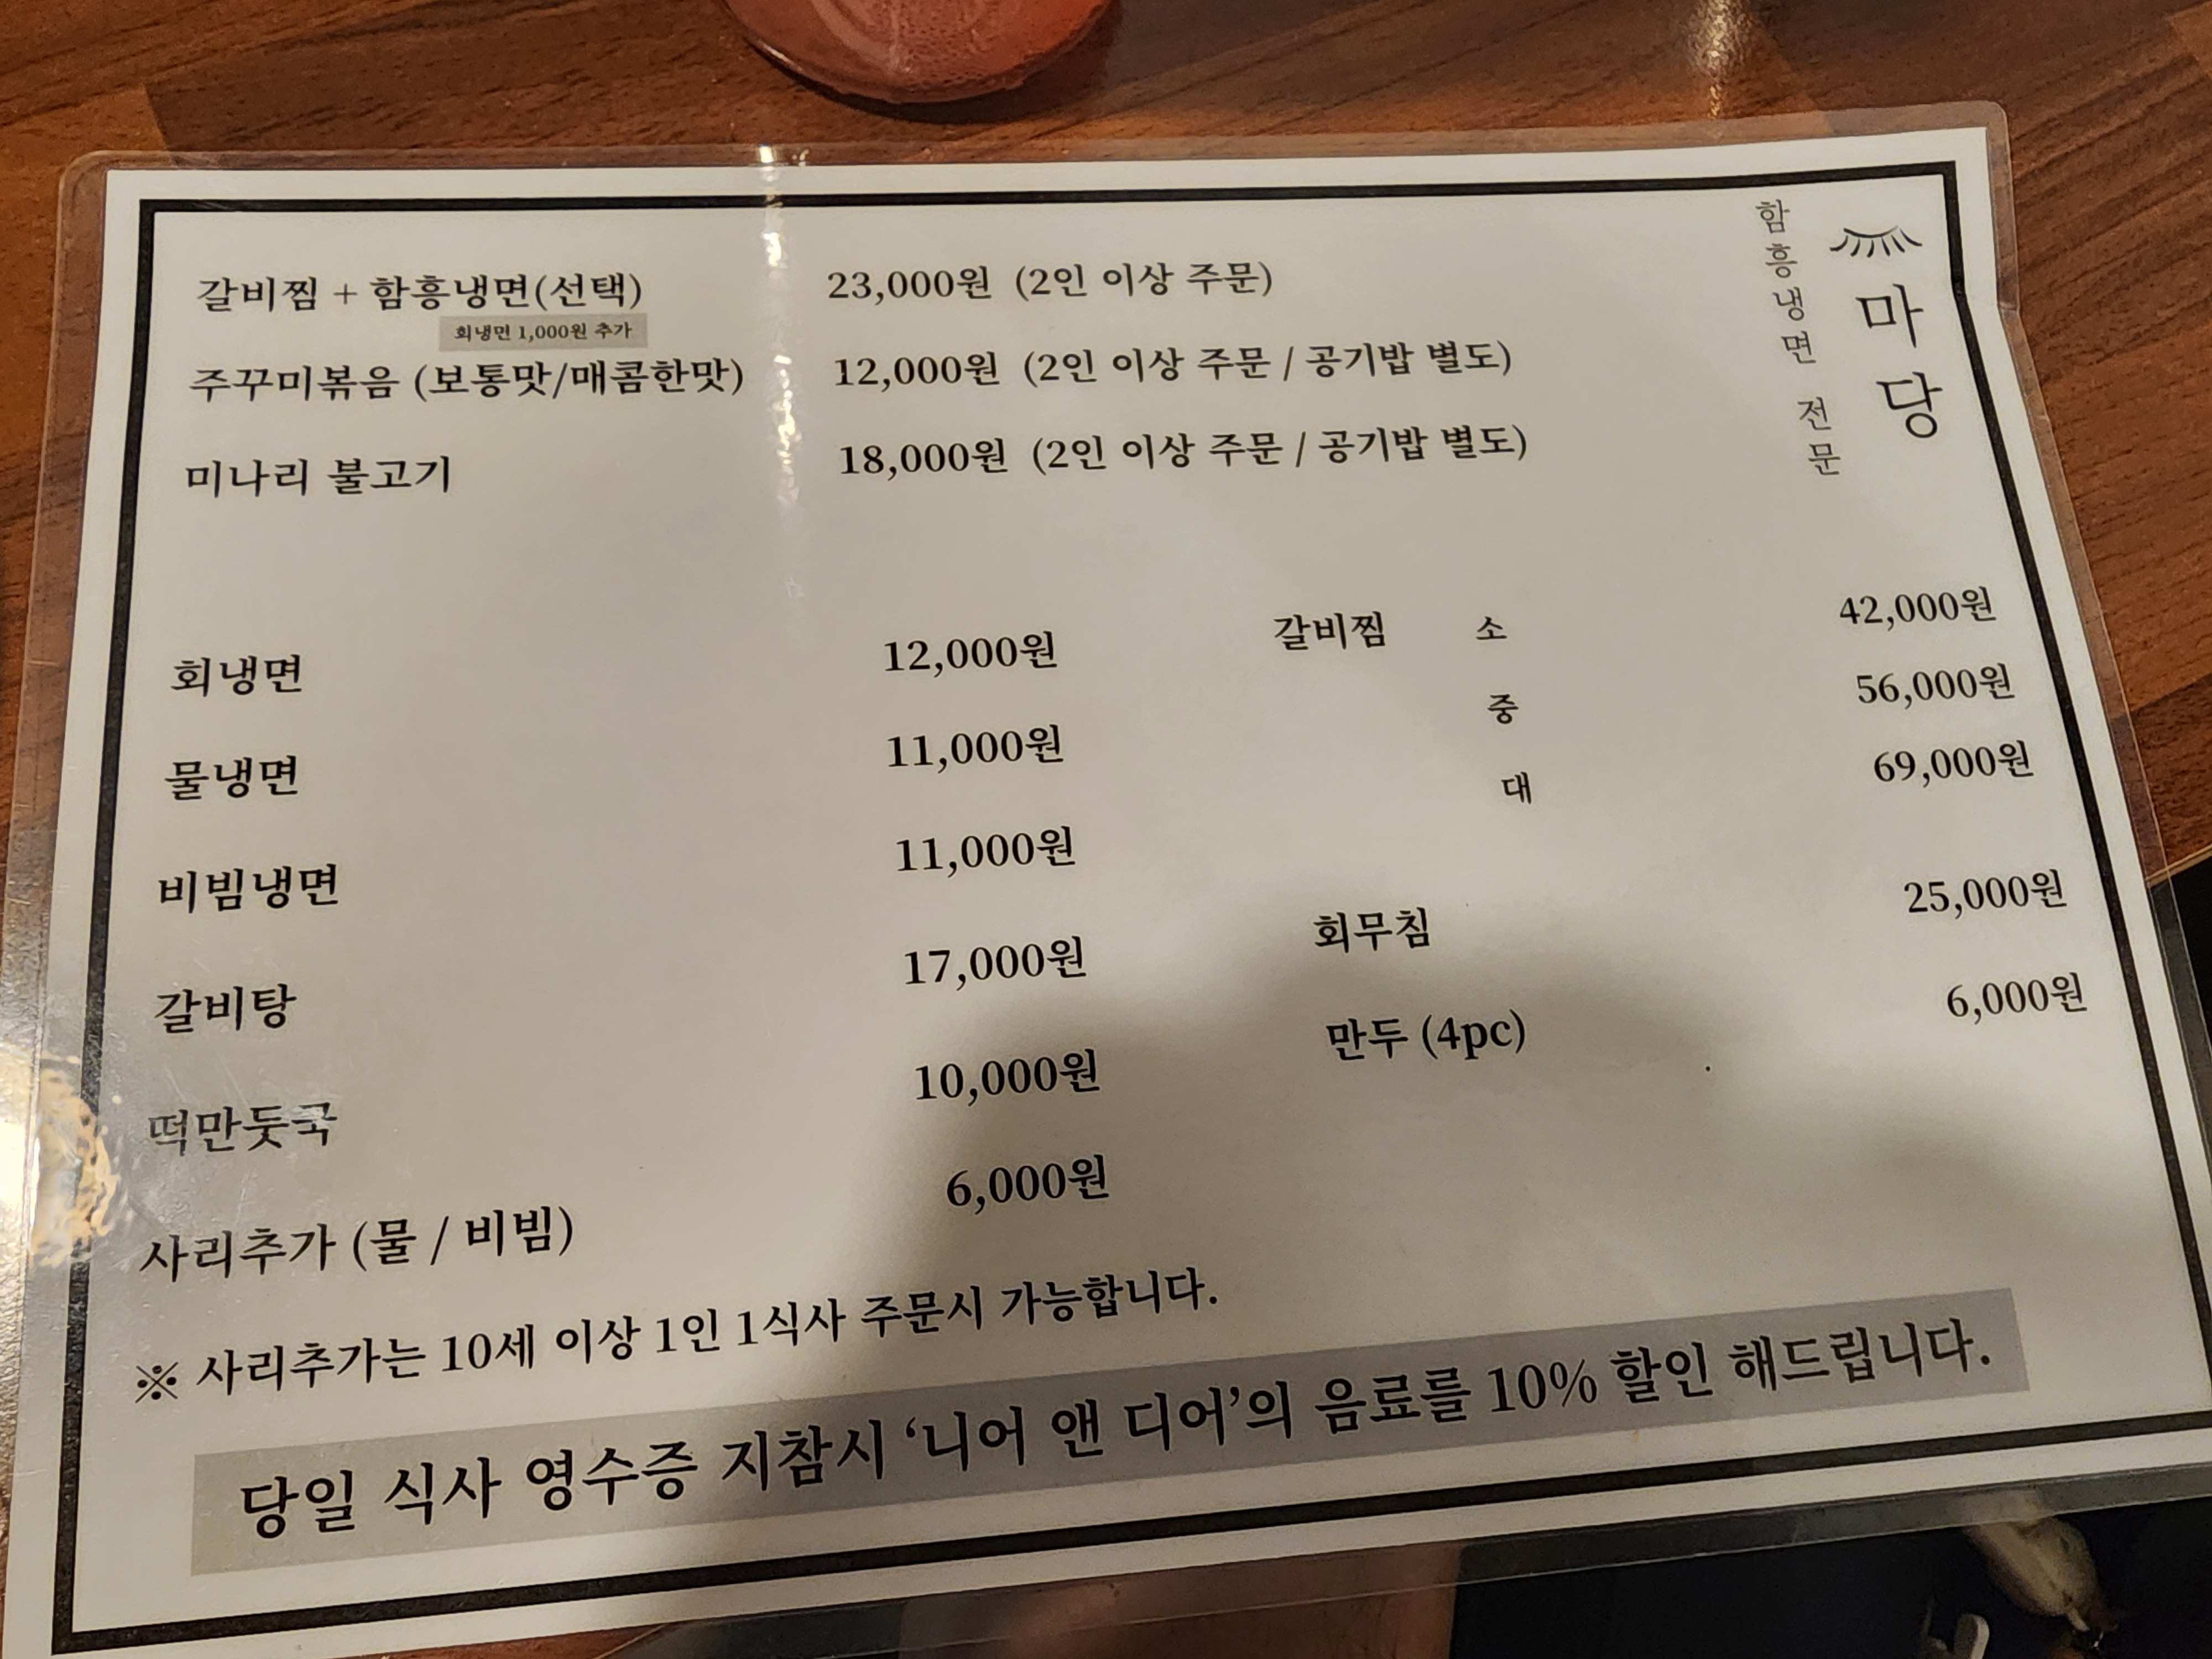 함흥냉면 전문
마당
갈비찜 + 함흥냉면(선택) 23,000원 (2인 이상 주문)
회냉면 1,000원 추가
주꾸미볶음 (보통맛/매콤한맛) 12,000원 (2인 이상 주문 / 공기밥 별도)
미나리 불고기 18,000원 (2인 이상 주문 / 공기밥 별도)
회냉면 12,000원
물냉면 11,000원
비빔냉면 11,000원
갈비탕 17,000원
떡만둣국 10,000원
사리추가 (물 / 비빔) 6,000원
갈비찜 소 42,000원
중 56,000원
대 69,000원
회무침 25,000원
만두 (4pc) 6,000원
※ 사리추가는 10세 이상 1인 1식사 주문시 가능합니다.
당일 식사 영수증 지참시 ‘니어 앤 디어’의 음료를 10% 할인 해드립니다.